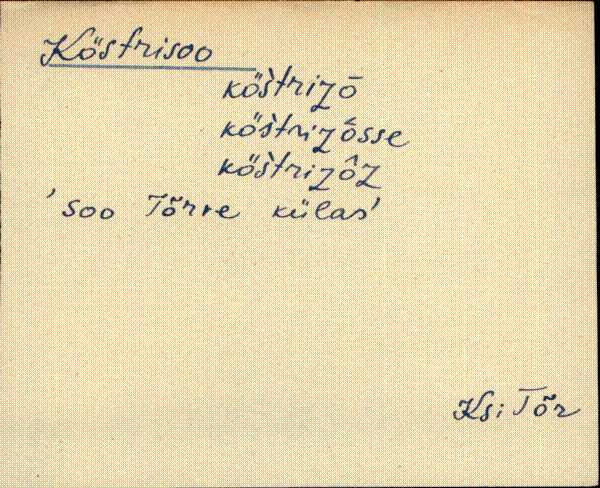 Köstrisoo
köstrizō
köstrizôsse
köstrizôz
'soo Tõrre külas'
Ksi Tõr